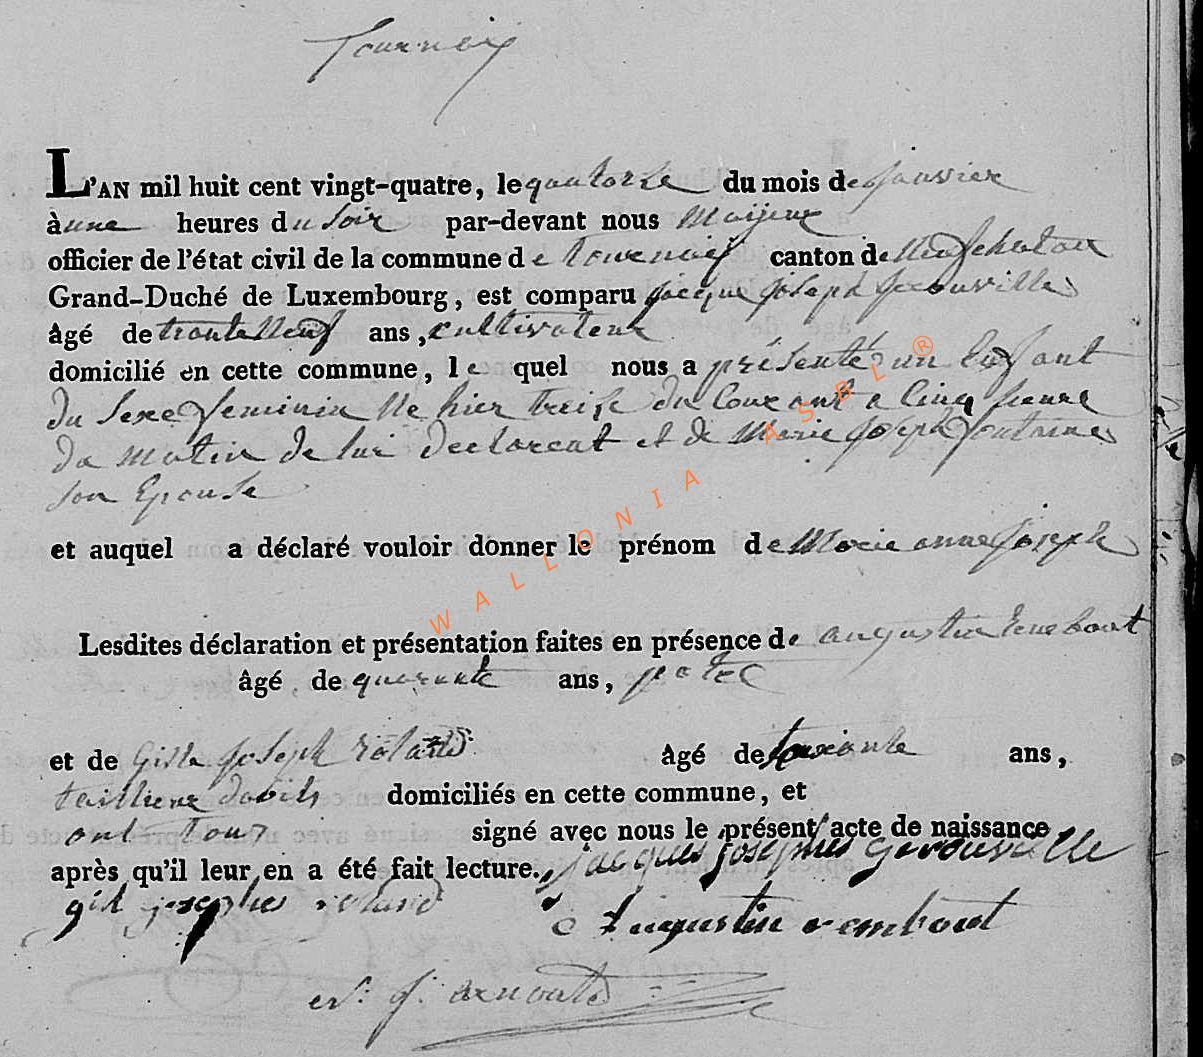 Tournay
L'AN mil huit cent vingt-quatre, le quatorze du mois de Janvier
à une heures du Soir par-devant nous Maijeur
officier de l'état civil de la commune de Tournay canton de Neufchateau
Grand-Duché de Luxembourg, est comparu Jacque Joseph Gerouville
âgé de trente neuf ans, cultivateur
domicilié en cette commune, le quel nous a présenté un Enfant
du Sexe feminin Né hier treize du Courant a Cinq heure
du Matin de lui Declarent et de Marie Joseph fontaine
son Epouse
et auquel a déclaré vouloir donner le prénom de Marie anne Joseph
Lesdites déclaration et présentation faites en présence de augustin Rembout
âgé de quarante ans,
et de Gille Joseph Roland âgé de soixante ans,
tailleure dabits domiciliés en cette commune, et
ont Tous signé avec nous le présent acte de naissance
après qu'il leur en a été fait lecture. jacques josephes Gerouville
gil josephes roland Augustin rembout
arnould
WALLONIA ASBL ®